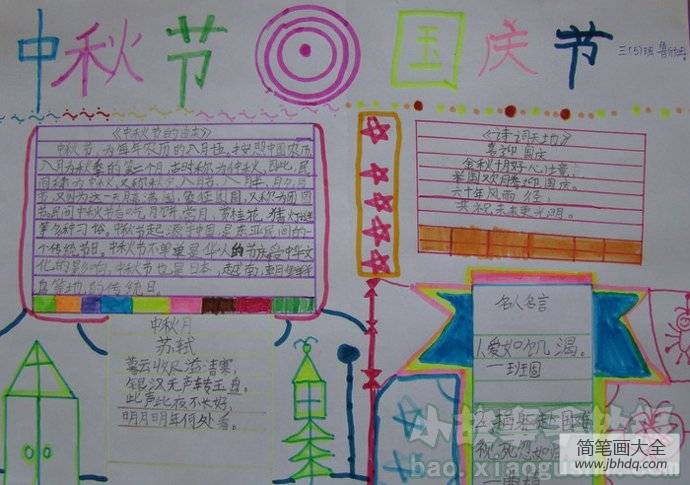 中秋节 国庆节
三(5)班
《中秋节的由来》
中秋节,为每年农历的八月十五,按照中国农历,
八月为秋季的第二个月,古时称为仲秋,因此,民
间称为中秋,又称秋夕、八月节、八月半、月夕、月
节,又因为这一天月亮满圆,象征团圆,又称为团圆
节。民间中秋节有吃月饼,赏月,赏桂花,猜灯谜
等多种习俗。中秋节起源于中国,是东亚民间的一
个传统节日。中秋节不单单是华人的节庆,受中华文
化的影响,中秋节也是日本,越南,朝鲜半
岛等地的传统日。
《诗词天地》
喜迎国庆
金秋十月好心情,
举国欢腾迎国庆。
六十年风雨径,
共祝未来更光明。
中秋月
苏轼
暮云收尽溢清寒,
银汉无声转玉盘。
此声此夜不长好,
明月明年何处看。
名人名言
1、爱如饥渴。
一班固
2、捐躯赴国难,
视死忽如归
小故事大教学
bao.xiaogushi.com
简笔画大全
www.jbhdq.com